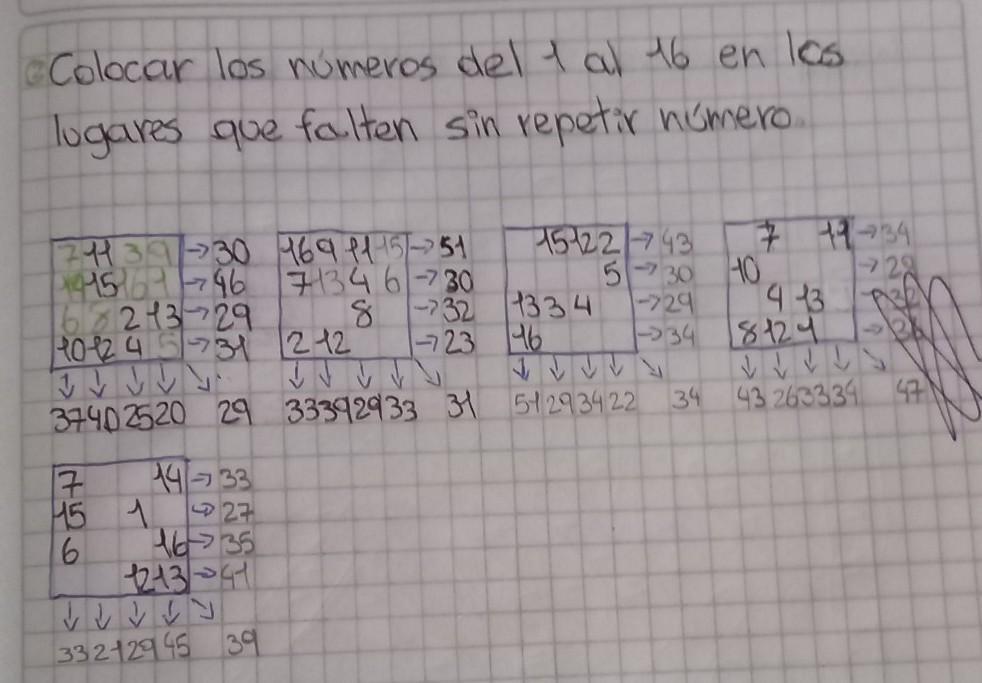 Colocar los números del 1 al 16 en los
lugares que falten sin repetir número.
7 11 3 9 → 30
14 15 16 1 → 46
6 8 2 13 → 29
10 12 4 5 → 31
↓ ↓ ↓ ↓ ↘
37 40 25 20 29
16 9 11 15 → 51
7 13 4 6 → 30
8 → 32
2 12 → 23
↓ ↓ ↓ ↓ ↘
33 39 29 33 31
15 12 2 → 43
5 → 30
13 3 4 → 29
16 → 34
↓ ↓ ↓ ↓ ↘
51 29 34 22 34
7 11 → 34
10 → 29
4 13
8 12 1
↓ ↓ ↓ ↓ ↘
43 26 33 34 47
7 14 → 33
15 1 → 27
6 16 → 35
12 13 → 41
↓ ↓ ↓ ↓ ↘
33 21 29 45 39